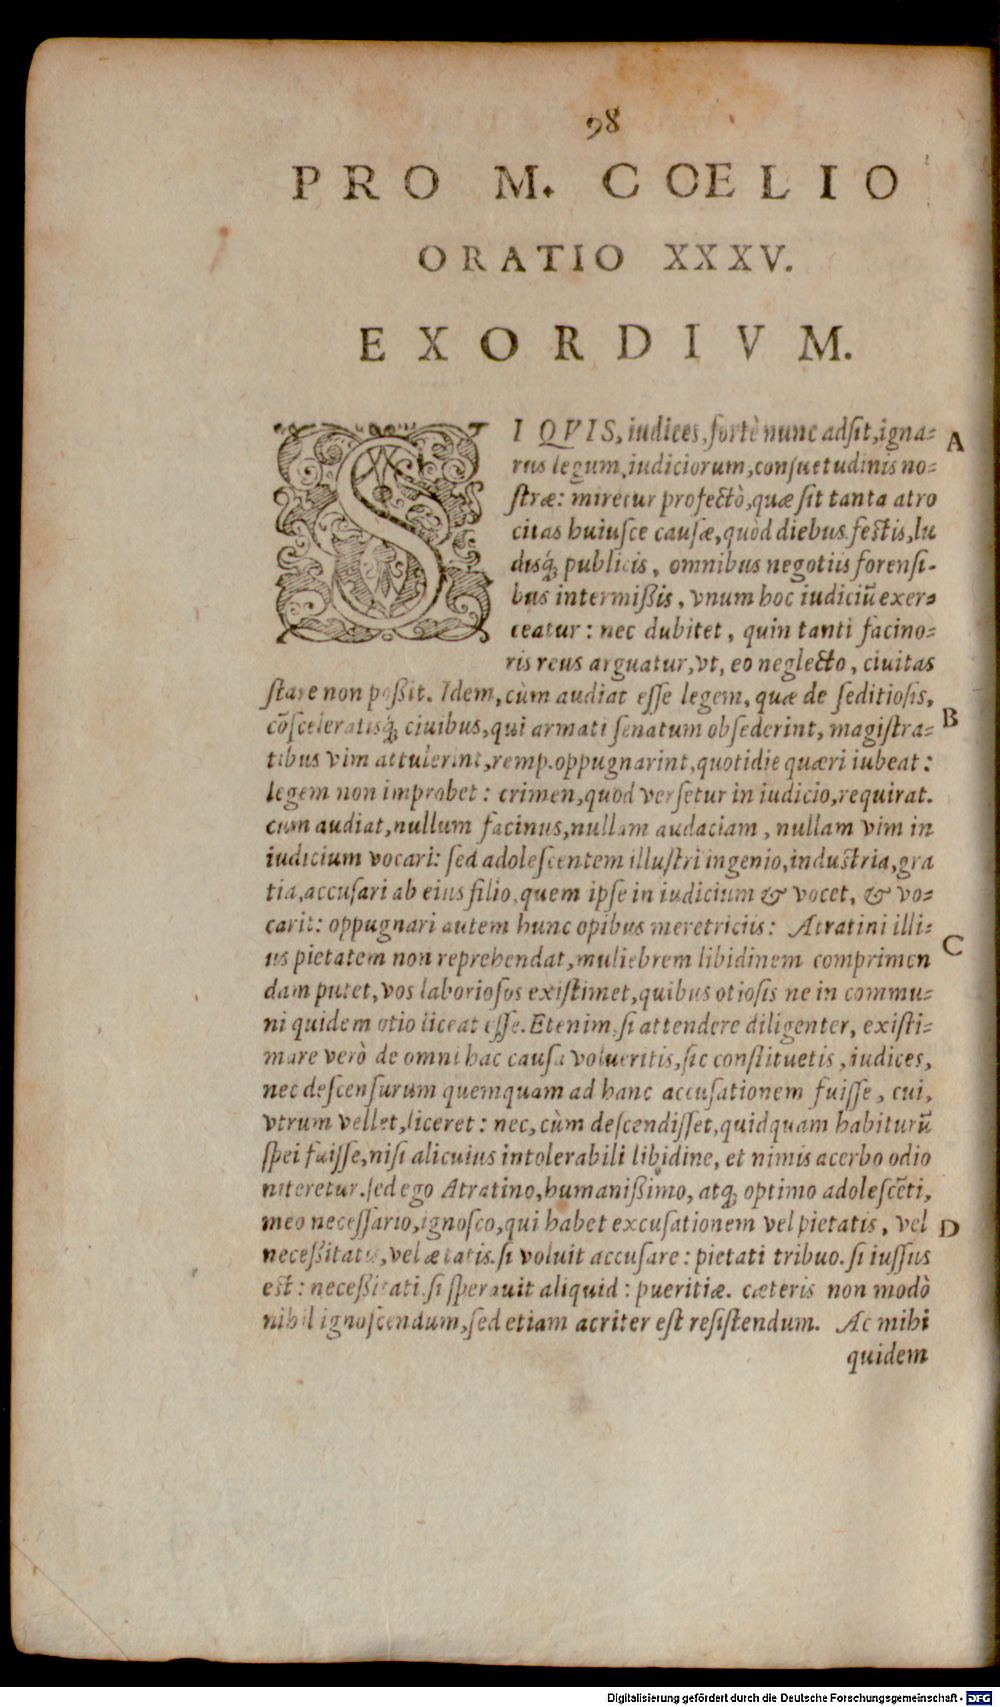 98
PRO M. COELIO
ORATIO XXXV.
EXORDIVM.
SI QVIS, iudices, fortè nunc adsit, igna=
rus legum, iudiciorum, consuetudinis no=
stræ: miretur profectò, quæ sit tanta atro
citas huiusce causæ, quòd diebus festis, lu
disq́; publicis, omnibus negotiis forensi-
bus intermißis, vnum hoc iudiciũ exer=
ceatur: nec dubitet, quin tanti facino=
ris reus arguatur, vt, eo neglecto, ciuitas
stare non poßit. Idem, cùm audiat esse legem, quæ de seditiosis,
cõsceleratisq́; ciuibus, qui armati senatum obsederint, magistra=
tibus vim attulerint, remp. oppugnarint, quotidie quæri iubeat:
legem non improbet: crimen, quod versetur in iudicio, requirat.
cum audiat, nullum facinus, nullam audaciam, nullam vim in
iudicium vocari: sed adolescentem illustri ingenio, industria, gra
tia, accusari ab eius filio, quem ipse in iudicium & vocet, & vo=
carit: oppugnari autem hunc opibus meretriciis: Atratini illi=
us pietatem non reprehendat, muliebrem libidinem comprimen
dam putet, vos laboriosos existimet, quibus otiosis ne in commu=
ni quidem otio liceat esse. Etenim, si attendere diligenter, existi=
mare verò de omni hac causa volueritis, sic constituetis, iudices,
nec descensurum quemquam ad hanc accusationem fuisse, cui,
vtrum vellet, liceret: nec, cùm descendisset, quidquam habiturũ
spei fuisse, nisi alicuius intolerabili libidine, et nimis acerbo odio
niteretur. sed ego Atratino, humanißimo, atq́; optimo adolescẽti,
meo necessario, ignosco, qui habet excusationem vel pietatis, vel
neceßitatis, vel ætatis. si voluit accusare: pietati tribuo. si iussus
est: neceßitati. si sperauit aliquid: pueritiæ. cæteris non modò
nihil ignoscendum, sed etiam acriter est resistendum. Ac mihi
quidem
A
B
C
D
Digitalisierung gefördert durch die Deutsche Forschungsgemeinschaft - DFG